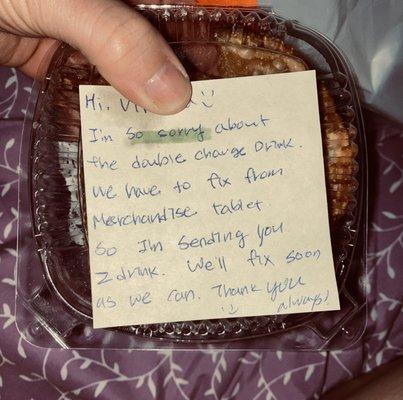 Hi, Vi
I'm so sorry about
the double charge Drink.
We have to fix from
Merchandise tablet
So I'm sending you
2 drink. We'll fix soon
as we can. Thank you
always!